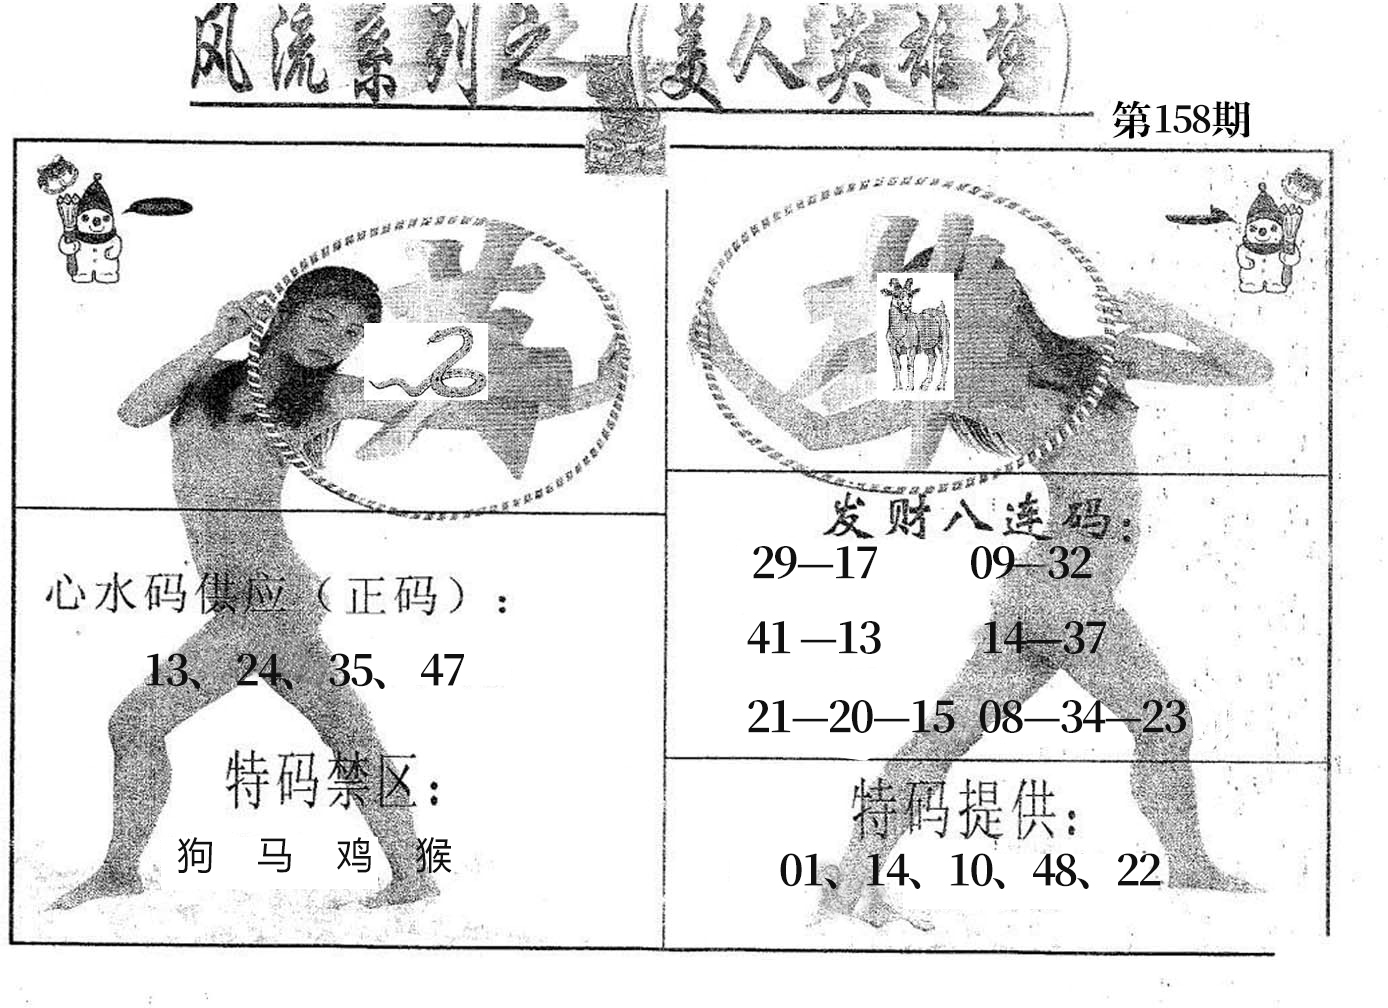 风流系列之（美人英雄梦
第158期
心水码供应（正码）:
13、24、35、47
特码禁区:
狗 马 鸡 猴
发财八连码:
29—17 09—32
41 —13 14—37
21—20—15 08—34—23
特码提供:
01、14、10、48、22